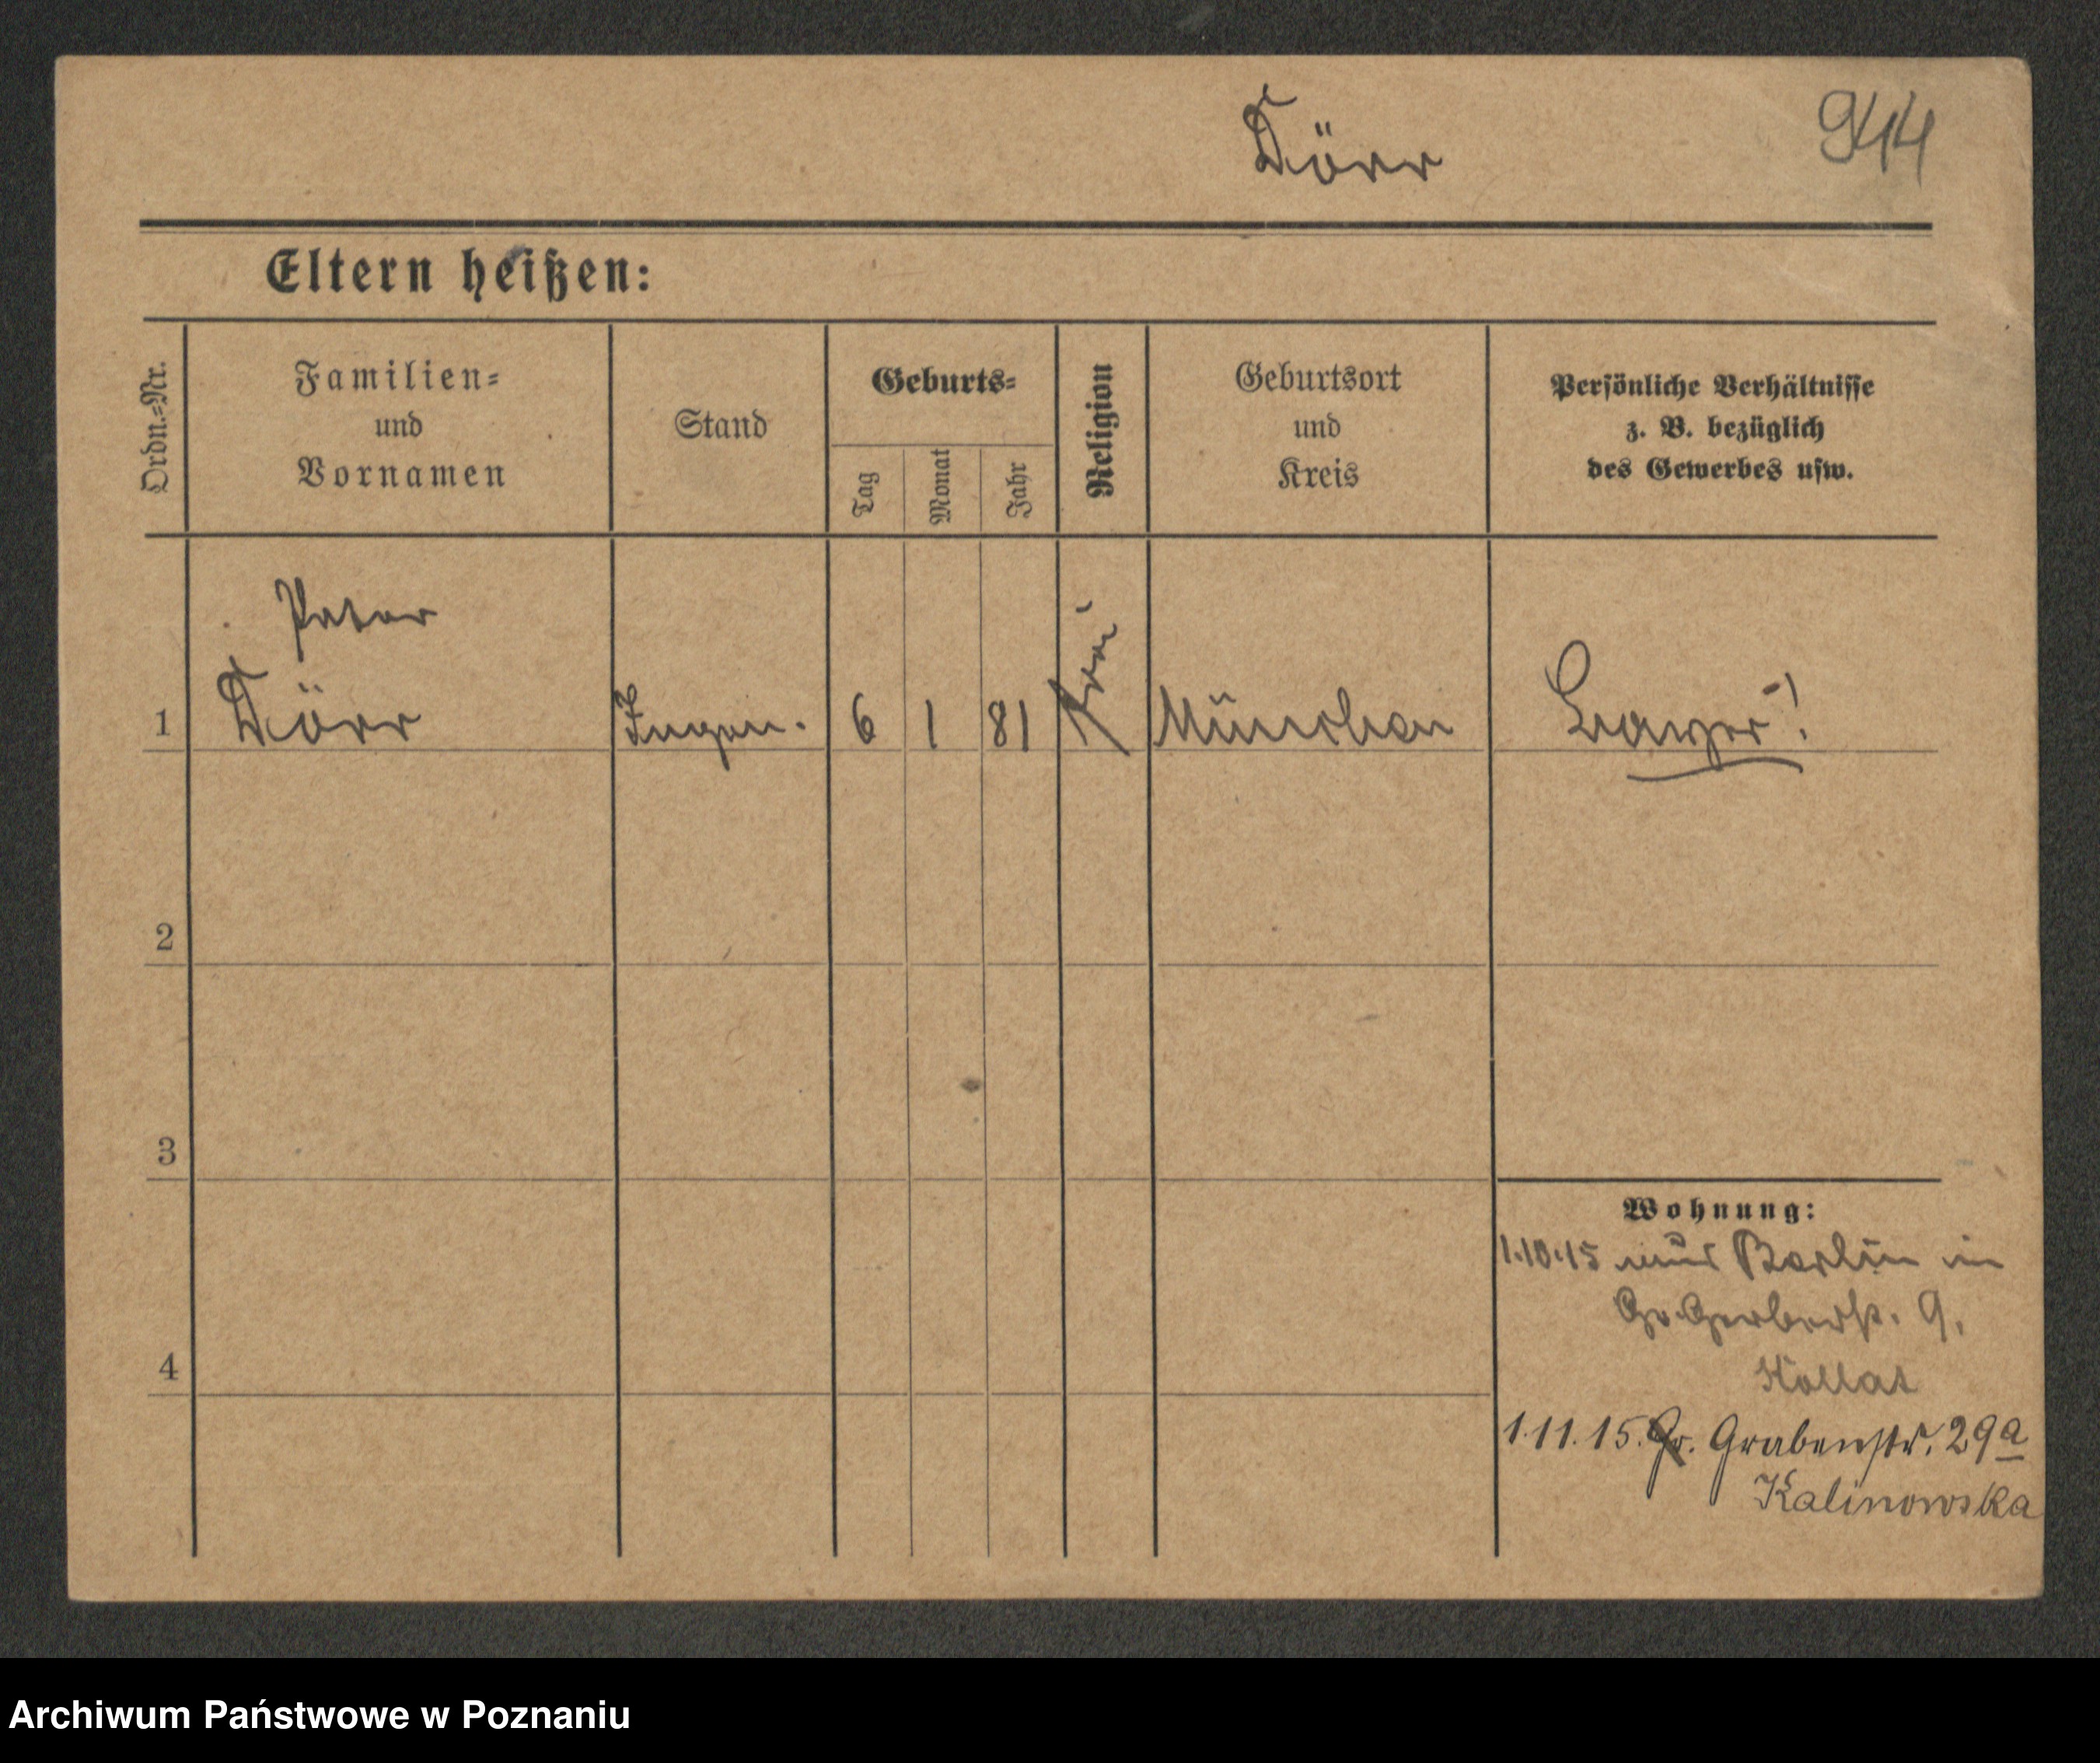 Dörr
944
Eltern heißen:
Ordn.=Nr.
Familien=
und
Vornamen
Stand
Geburts=
Tag
Monat
Jahr
Religion
Geburtsort
und
Kreis
Persönliche Verhältnisse
z. B. bezüglich
des Gewerbes usw.
Peter
1 Dörr Ingen. 6 1 81 München Bayer!
2
3
4
Wohnung:
1.10.15 aus Berlin in
Gr. Gerberstr. 9.
Kollat
1.11.15. Gr. Grabenstr. 29a
Kalinowska
Archiwum Państwowe w Poznaniu